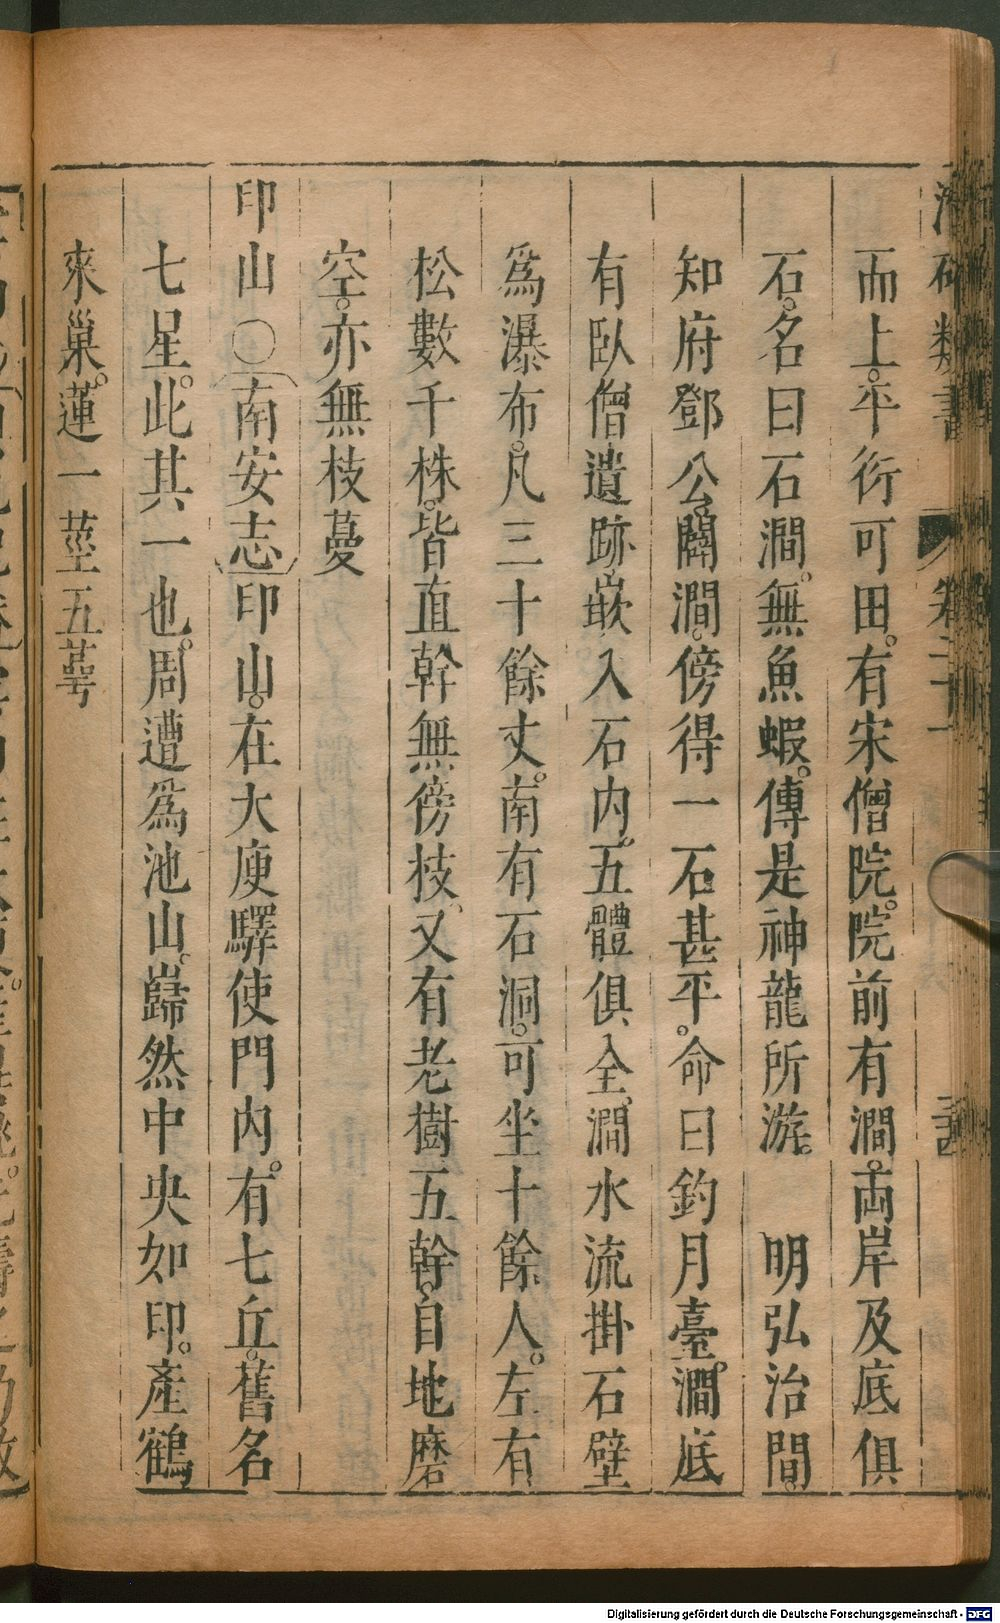 潛確類書 卷二十一
而上。平衍可田。有宋僧院。院前有澗。兩岸及底俱
石。名曰石澗。無魚蝦。傳是神龍所游。 明弘治間。
知府鄧公闢澗。傍得一石甚平。命曰釣月臺。澗底
有臥僧遺跡。嵌入石内。五體俱全。澗水流掛石壁
爲瀑布。凡三十餘丈。南有石洞。可坐十餘人。左有
松數千株。皆直幹無傍枝。又有老樹五幹。自地磨
空。亦無枝蔓
印山○南安志印山。在大庾驛使門内。有七丘。舊名
七星。此其一也。周遭爲池。山巋然中央如印。產鶴
來巢。蓮一莖五萼
Digitalisierung gefördert durch die Deutsche Forschungsgemeinschaft - DFG